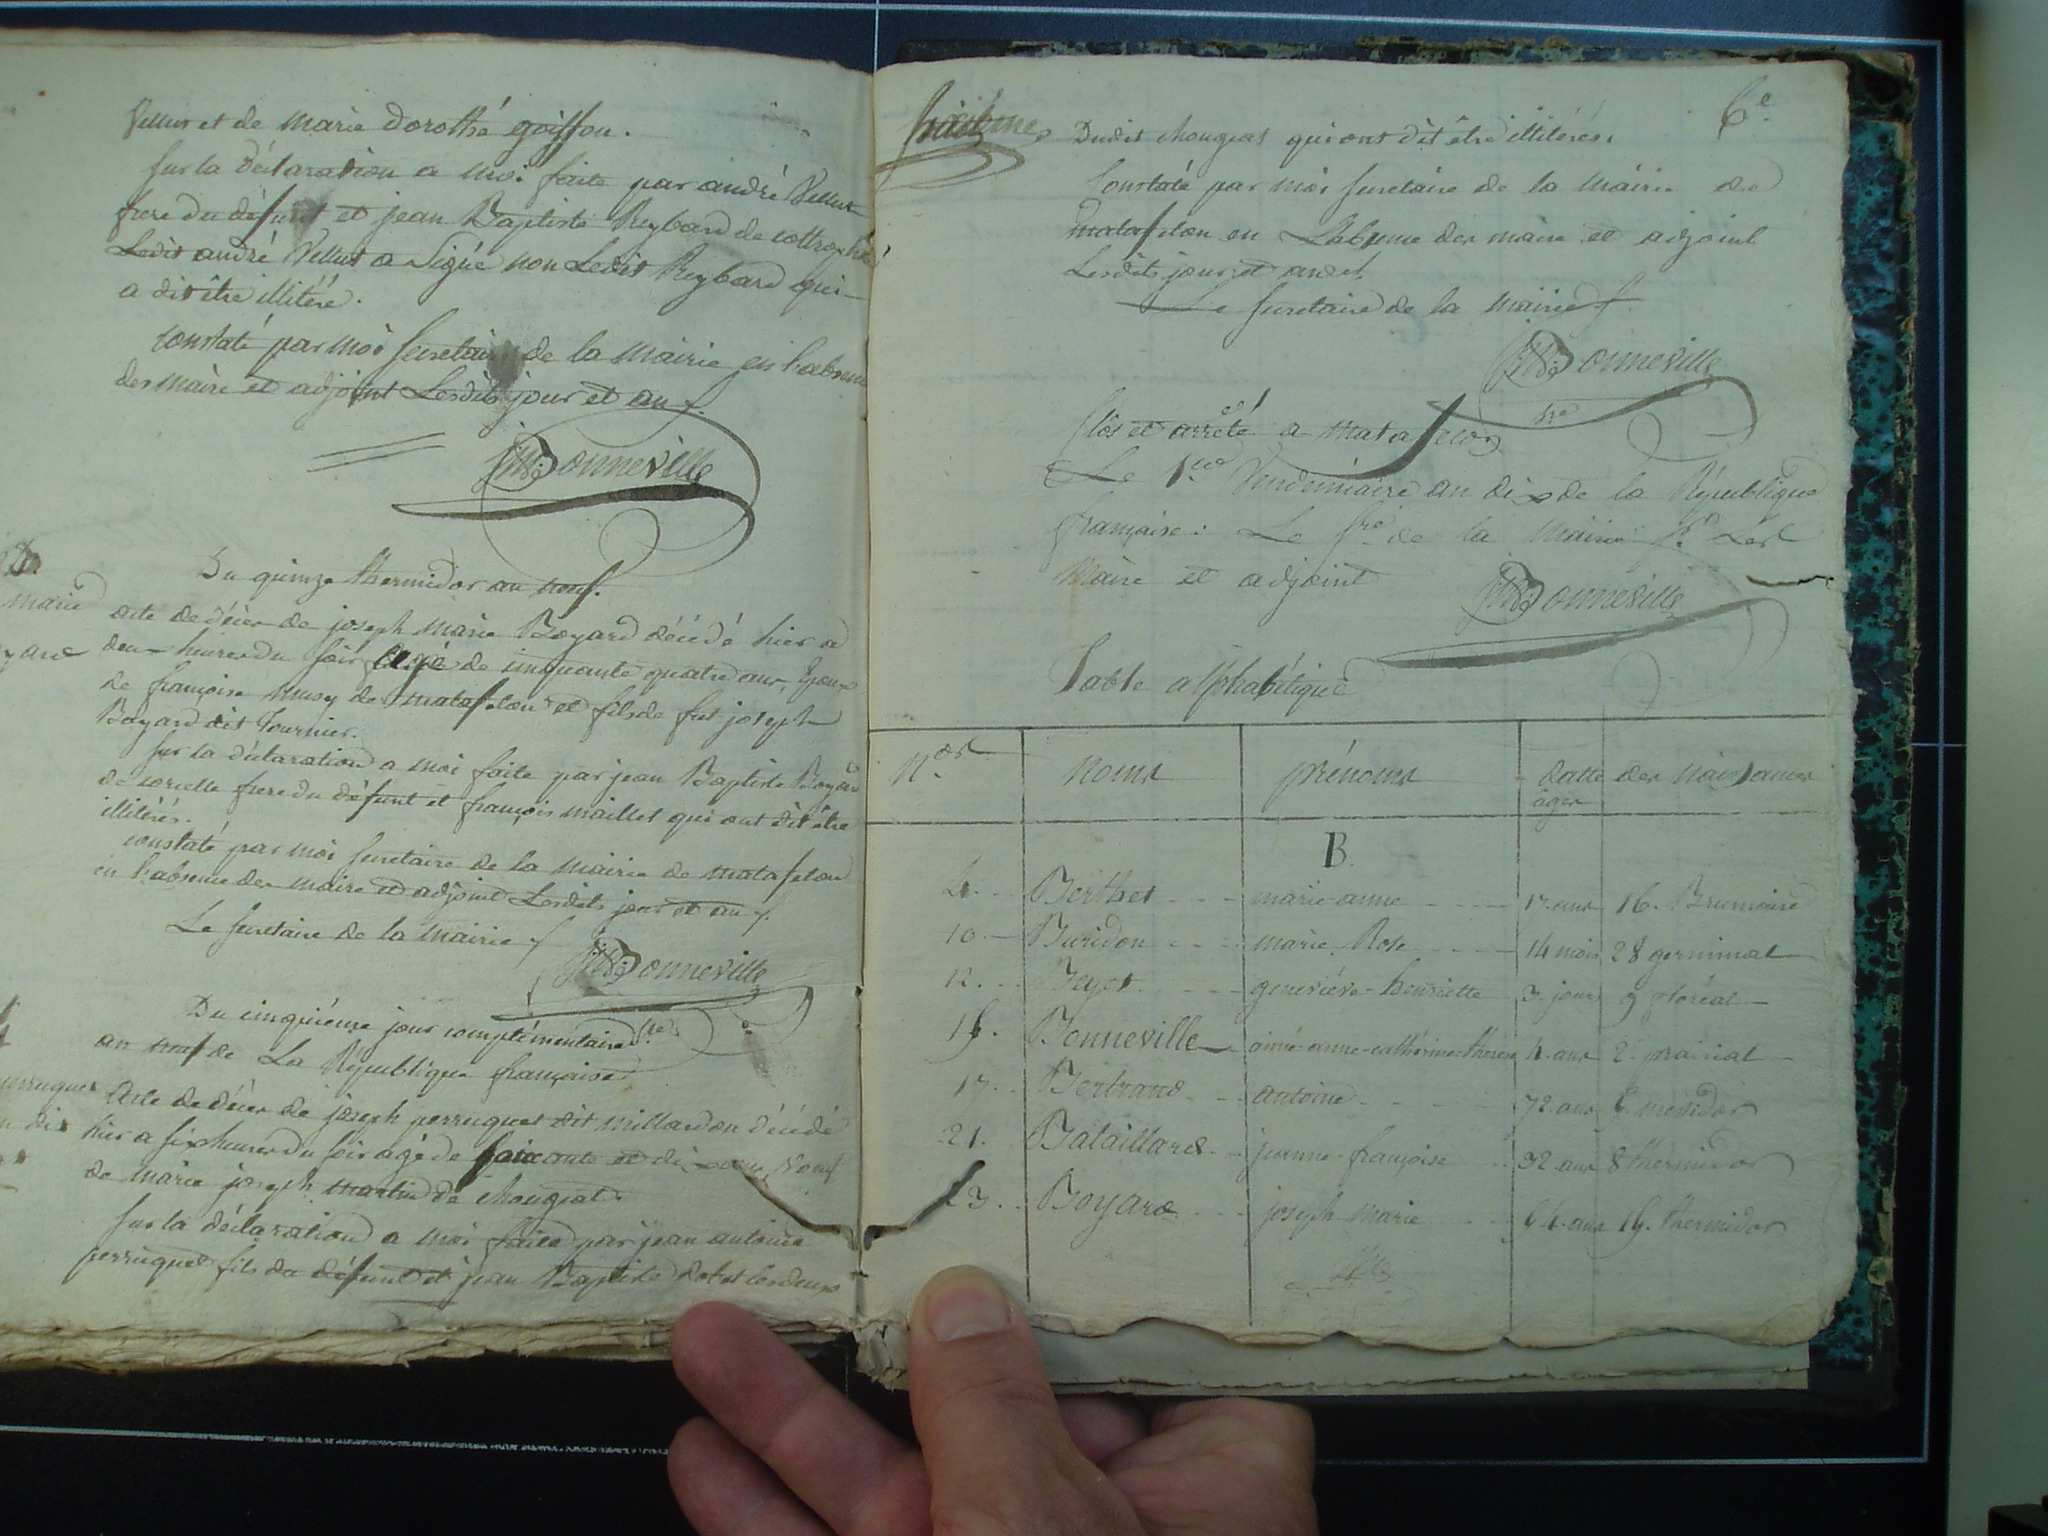 Vellut et de marie dorothé goiffon.
Sur la déclaration a moi faite par andré Vellut
frere du défunt et jean Baptiste Reybard de
Ledit andré Vellut a Signé non Ledit Reybard qui
a dit être illitéré.
constaté par moi Secretaire de la mairie en l'absence
des maire et adjoint Lesdits jour et an
Bonneville
Du quinze thermidor an neuf.
marie
acte de décès de joseph marie Boyard décédé hier a
deux heures du soir agé de cinquante quatre ans, Epoux
de françoise musy de matafelon et fils de feu joseph
Boyard dit Tournier.
Sur la déclaration a moi faite par jean Baptiste Boyard
de corcelle frere du défunt et françois maillet qui ont dit être
illitérés.
constaté par moi Secretaire de la mairie de matafelon
en l'absence des maire et adjoint Lesdits jour et an
Le Secretaire de la mairie
Bonneville
Du cinquième jour complémentaire
an neuf de La République française
Acte de décès de joseph perruquet dit millardon décédé
hier a six heures du soir agé de soixante et dix ans, Veuf
de marie joseph martin de Chougeat
Sur la déclaration a moi faite par jean antoine
perruquet fils du défunt et jean Baptiste les deux
6e
Dudit Chougeat qui ont dit être illitérés.
Constaté par moi Secretaire de la mairie de
matafelon en L'absence des maire et adjoint
Lesdits jour et an
Le Secretaire de la mairie
Bonneville
Clos et arrêté a matafelon
Le 1er Vendémiaire an dix de la République
française: Le Sre de la mairie pr Les
Maire et adjoint
Bonneville
Table alphabétique
Nos noms prénoms datte des naissances
âges
B.
4. Berthet marie anne 17 ans 16. Brumaire
10 Buridon marie Rose 14 mois 28 germinal
12. Beyet geneviève henriette 3 jours 9 floréal
15. Bonneville aimé anne catherine therese 4 ans 2 prairial
17. Bertrand antoine 72 ans 5 messidor
21. Bataillard jeanne françoise 32 ans 8 thermidor
23. Boyard joseph marie 54 ans 15. thermidor